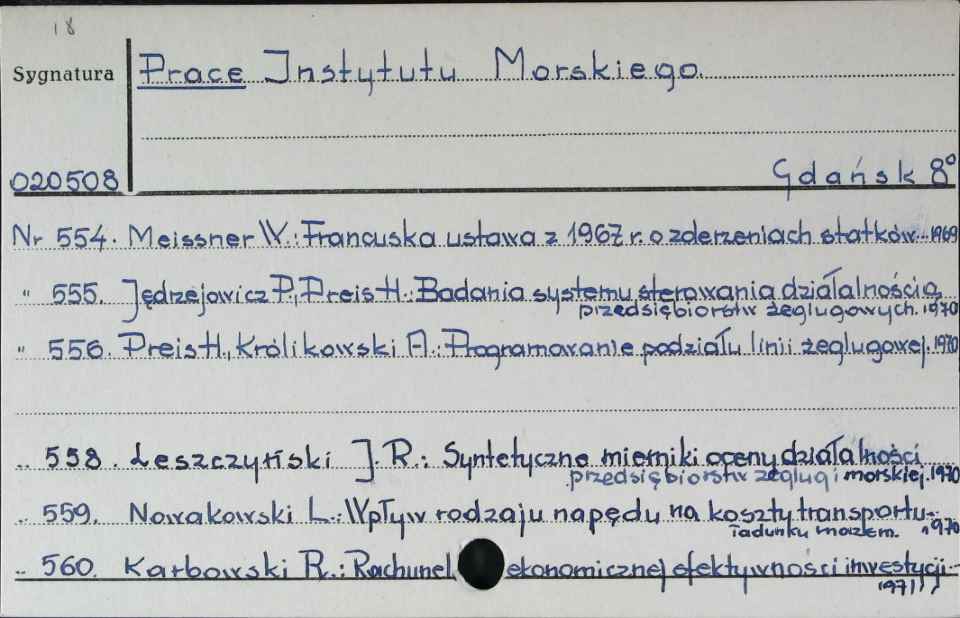 18
Sygnatura Prace Instytutu Morskiego.
020508 Gdańsk 8°
Nr 554. Meissner W.: Francuska ustawa z 1967 r. o zderzeniach statków. 1969
" 555. Jędrzejowicz P., Preis H.: Badania systemu sterowania działalnością
przedsiębiorstw żeglugowych. 1970
" 556. Preis H., Królikowski A.: Programowanie podziału linii żeglugowej. 1970
" 558. Leszczyński J. R.: Syntetyczne mierniki oceny działalności
przedsiębiorstw żeglugi morskiej. 1970
" 559. Nowakowski L.: Wpływ rodzaju napędu na koszty transportu
ładunku morzem. 1970
" 560. Karbowski R.: Rachunek ekonomicznej efektywności inwestycji
1971